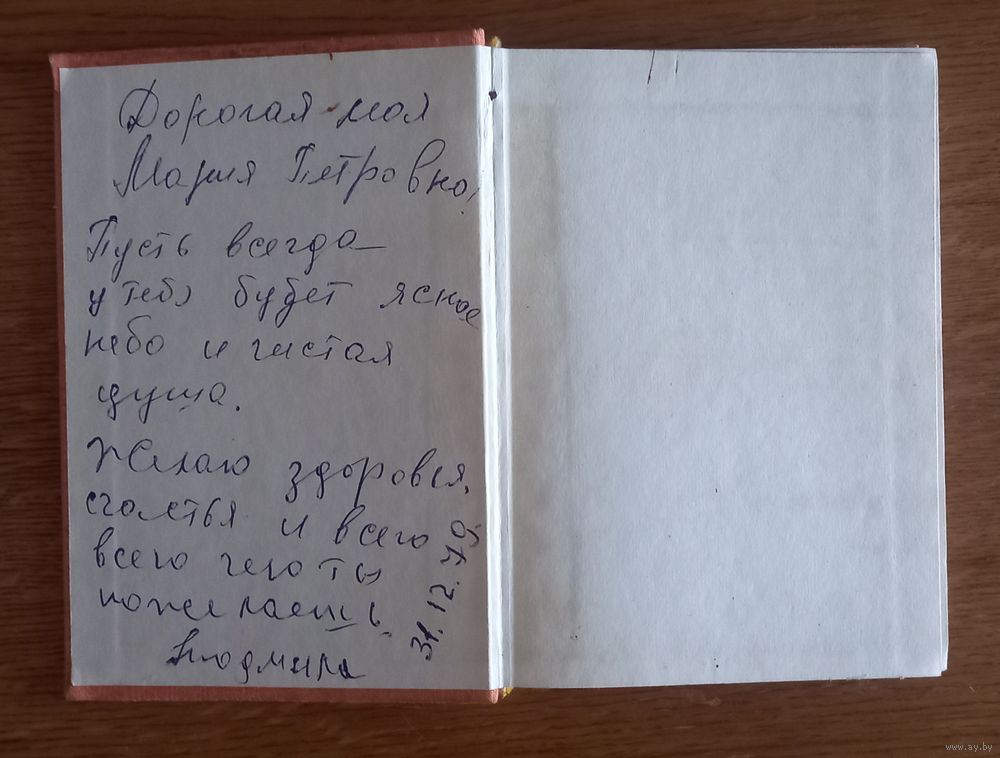 Дорогая моя
Мария Петровна!
Пусть всегда
у тебя будет ясное
небо и чистая
душа.
Желаю здоровья,
счастья и всего
всего чего ты
пожелаешь.
Людмила
31.12.79.
www.ay.by